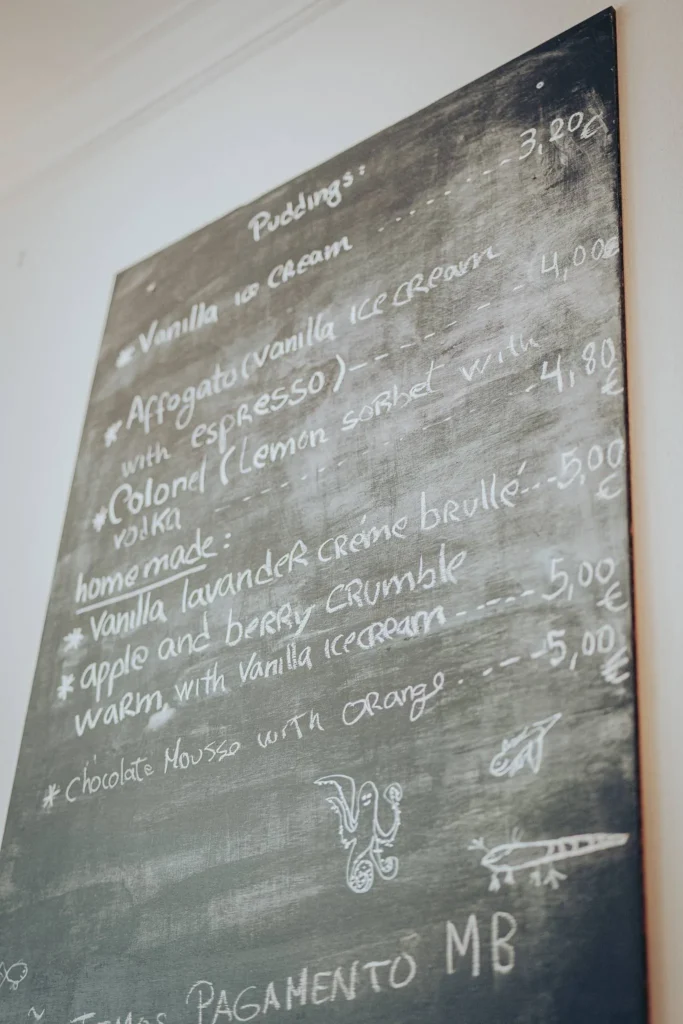 Puddings:
* Vanilla ice cream ........ 3,20€
* Affogato (vanilla ice cream
with espresso) ------ 4,00€
* Colonel (Lemon sorbet with
vodka ------------ 4,80 €
home made:
* Vanilla lavander créme brullé --- 5,00 €
* apple and berry crumble
warm with vanilla icecream ----- 5,00 €
* Chocolate Mousse with orange ----- 5,00 €
TEMOS PAGAMENTO MB